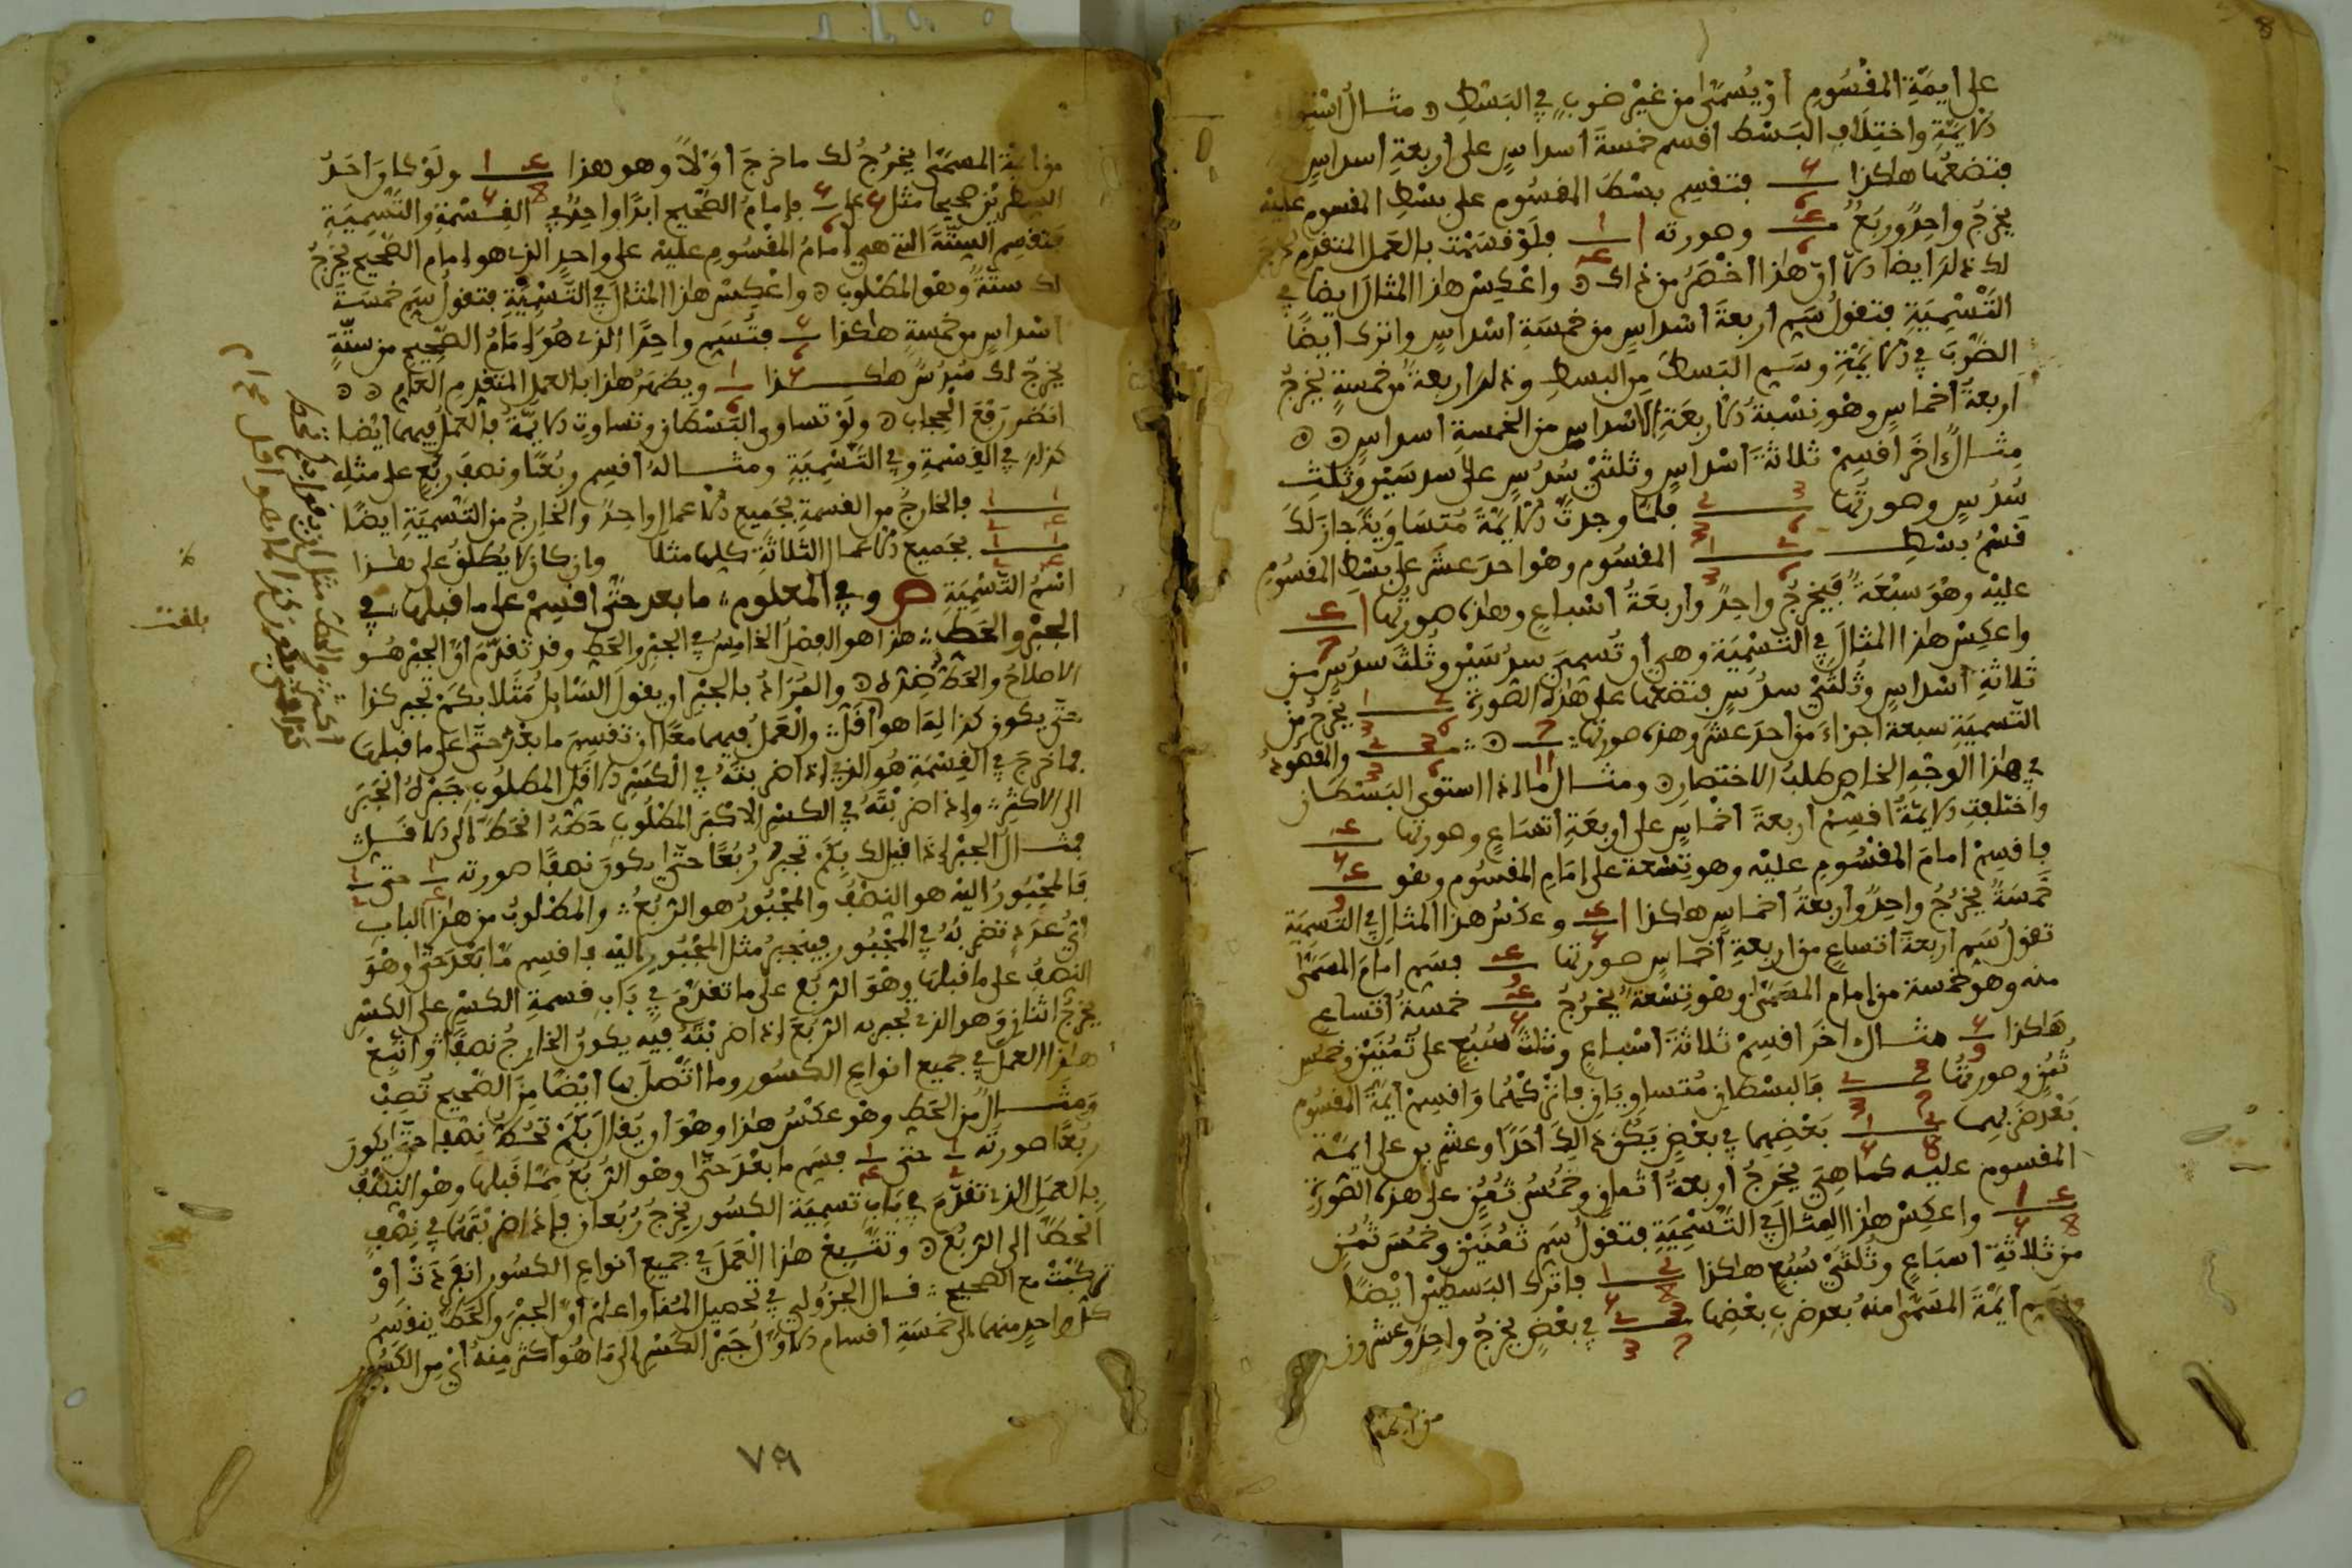 على ايمة المقسوم او يسمى من غير ضرب في البسط ۞ مثال
الايمة واختلاف البسط اقسم خمسة اسداس على اربعة اسداس
فتضعها هاكذا فتقسم بسط المقسوم على بسط المقسوم عليه
يخرج واحد وربع وصورته فلو قسمت بالعمل المتقدم لخرج
لك ذلك ايضا الا ان هاذا اخصر من ذاك ۞ واعكس هاذا المثال ايضا في
التسمية فتقول سم اربعة اسداس من خمسة اسداس واترك ايضا
الضرب في الايمة وسم البسط من البسط وذلك اربعة من خمسة يخرج
اربعة اخماس وهو نسبة الاربعة الاسداس من الخمسة اسداس ۞ ۞
مثال اخر اقسم ثلاثة اسداس وثلثي سدس على سدسين وثلث
سدس وصورتها فلما وجدت الايمة متساوية جاز لك
قسم بسط المقسوم وهو احد عشر على بسط المقسوم
عليه وهو سبعة فيخرج واحد واربعة اسباع وهاذه صورتها
واعكس هاذا المثال في التسمية وهي ان تسمي سدسين وثلث سدس من
ثلاثة اسداس وثلثي سدس فتضعها على هاذه الصورة يخرج من
التسمية سبعة اجزاء من احد عشر وهذه صورتها والمقصود
في هاذا الوجه الخاص طلب الاختصار ۞ ومثال ما اذا استوى البسطان
واختلفت الايمة اقسم اربعة اخماس على اربعة اتساع وصورتها
فاقسم امام المقسوم عليه وهو تسعة على امام المقسوم وهو
خمسة يخرج واحد واربعة اخماس هاكذا وعكس هذا المثال في التسمية
تقول سم اربعة اتساع من اربعة اخماس صورتها فسم امام المسمى
منه وهو خمسة من امام المسمى وهو تسعة يخرج خمسة اتساع
هاكذا مثال اخر اقسم ثلاثة اسباع وثلثي سبع على ثمنين وخمس
ثمن وصورتها فالبسطان متساويان فاتركهما واقسم ايمة المقسوم
بعد ضربها بعضها في بعض يكن ذالك احدا وعشرين على ايمة
المقسوم عليه كما هي يخرج اربعة اثمان وخمس ثمن على هذه الصورة
واعكس هاذا المثال في التسمية فتقول سم ثمنين وخمس ثمن
من ثلاثة اسباع وثلثي سبع هاكذا فاترك البسطين ايضا
وسم ايمة المسمى منه بعد ضرب بعضها في بعض يخرج واحد وعشرون
من ايمة
من ايمة المسمى يخرج لك ما خرج اولا وهو هذا ولو كان احد
البسطين صحيحا مثل على فامام الصحيح ابدا واحد في القسمة والتسمية
فتقسم الستة التي هي امام المقسوم عليه على واحد الذي هو امام الصحيح يخرج
لك ستة وهو المطلوب ۞ واعكس هاذا المثال في التسمية فتقول سم خمسة
اسداس من خمسة هاكذا فتسم واحدا الذي هو امام الصحيح من ستة
يخرج لك سدس هاكذا ويظهر هاذا بالعمل المتقدم العام ۞ ۞
انظر رفع الحجاب ۞ ولو تساوى البسطان وتساوت الايمة فالعمل فيهما ايضا
كذلك في القسمة وفي التسمية ومثاله اقسم ربعا ونصف ربع على مثله
فالخارج من القسمة بجميع الاعمال واحد والخارج من التسمية ايضا
بجميع الاعمال الثلاثة كلها مثلا وان كان لا يطلق على هاذا
اسم التسمية ص وفي المعلوم ما بعد حتى اقسم على ما قبلها في
الجبر والحط هذا هو الفصل الخامس في الجبر والحط وقد تقدم ان الجبر هو
الاصلاح والحط ضده ۞ والمراد بالجبر ان يقول السايل مثلا بكم تجبر كذا
حتى يكون كذا لما هو اقل والعمل فيهما معا ان تقسم ما بعد حتى على ما قبلها
فما خرج في القسمة هو الذي اذا ضربته في الكسر الاقل المطلوب جبره انجبر
الى الاكثر واذا ضربته في الكسر الاكبر المطلوب حطه انحط الى الاقل
مثال الجبر اذا قيل لك بكم تجبر ربعا حتى يكون نصفا صورته حتى
فالمجبور اليه هو النصف والمجبور هو الربع والمطلوب من هاذا الباب
اي عدد تضربه في المجبور فينجبر مثل المجبور اليه فاقسم ما بعد حتى وهو
النصف على ما قبلها وهو الربع على ما تقدم في باب قسمة الكسر على الكسر
يخرج اثنان وهو الذي تجبر به الربع اذا ضربته فيه يكون الخارج نصفا واتبع
هاذا العمل في جميع انواع الكسور وما اتصل بها ايضا من الصحيح تصب
ومثال من الحط وهو عكس هاذا وهو ان يقال بكم تحط نصفا حتى يكون
ربعا صورته حتى فسم ما بعد حتى وهو الربع مما قبلها وهو النصف
بالعمل الذي تقدم في باب تسمية الكسور يخرج ربعان فاذا ضربتهما في نصف
انحط الى الربع ۞ وتتبع هاذا العمل في جميع انواع الكسور انفردت او
تركبت مع الصحيح قال الجزولي في تحصيل المنا واعلم ان الجبر والحط ينقسم
كل واحد منهما الى خمسة اقسام الاول جبر الكسر الى ما هو اكثر منه اي من الكسور
بلغت
٧٩